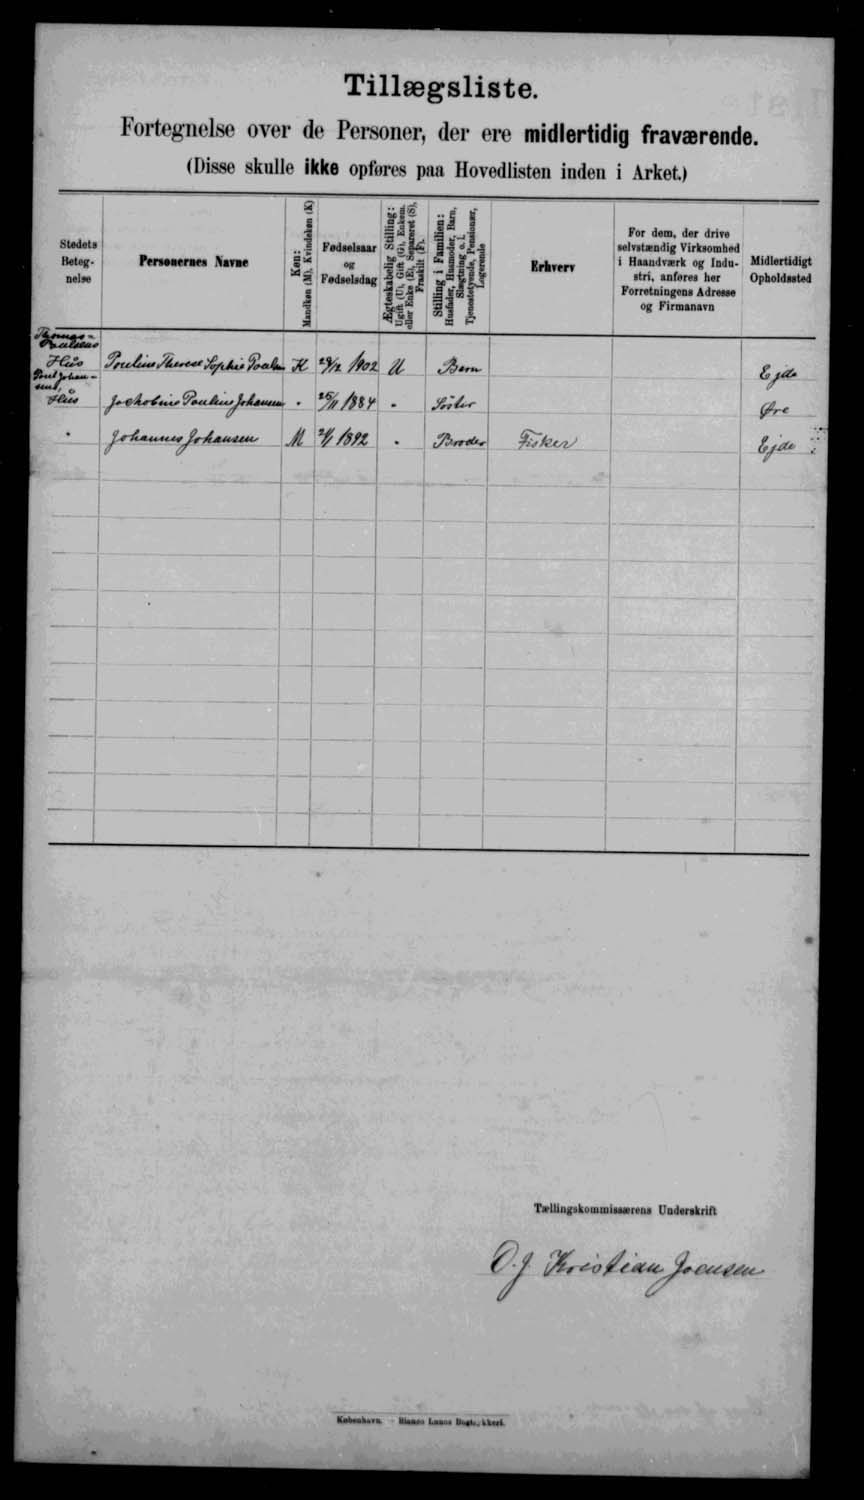 Tillægsliste.
Fortegnelse over de Personer, der ere midlertidig fraværende.
(Disse skulle ikke opføres paa Hovedlisten inden i Arket.)
Stedets Betegnelse
Personernes Navne
Køn:
Mandkøn (M), Kvindekøn (K)
Fødselsaar
og
Fødselsdag
Ægteskabelig Stilling:
Ugift (U), Gift (G), Enkem.
eller Enke (E), Separeret (S),
Fraskilt (F).
Stilling i Familien:
Husfader, Husmoder, Barn,
Slægtning o. l.
Tjenestetyende, Pensionær,
Logerende
Erhverv
For dem, der drive
selvstændig Virksomhed
i Haandværk og Indu-
stri, anføres her
Forretningens Adresse
og Firmanavn
Midlertidigt
Opholdssted
Thomas-
Poulsens
Hus Pouline Therese Sophie Poulsen K 29/12 1902 U Barn Ejde
Poul Johan-
sens,
Hus Jackobine Pouline Johansen " 25/11 1884 " Søster Øre
" Johannes Johansen M 2/1 1892 " Broder Fisker Ejde
Tællingskommissærens Underskrift
O. J. Kristian Joensen
København. — Bianco Lunos Bogtrykkeri.